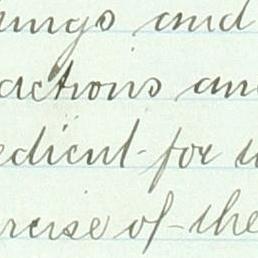 ings and
actions an
edient for
rcise of the